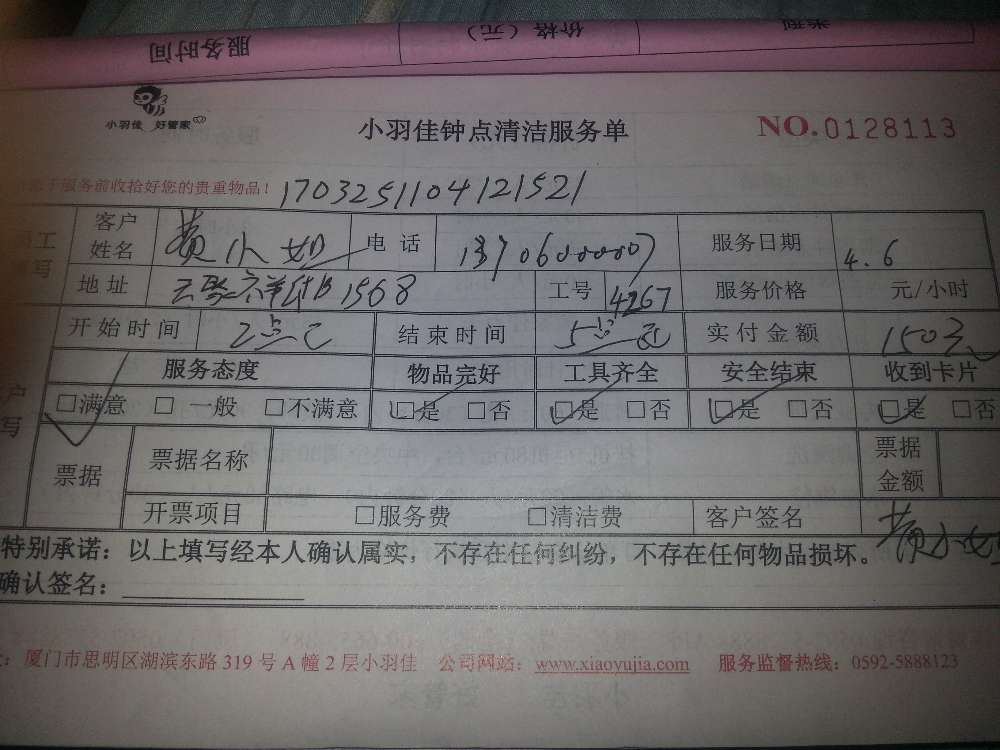 服务时间 价格（元） 类别
小羽佳 好管家
小羽佳钟点清洁服务单 NO.0128113
服务前收拾好您的贵重物品！ 1703251104121521
客户姓名 黄小如 电话 服务日期 4.6
地址 1568 工号 4267 服务价格 元/小时
开始时间 2点 结束时间 5点 实付金额 150元
服务态度 物品完好 工具齐全 安全结束 收到卡片
□满意 □一般 □不满意 □是 □否 □是 □否 □是 □否 □是 □否
票据 票据名称 票据金额
开票项目 □服务费 □清洁费 客户签名 黄小如
特别承诺：以上填写经本人确认属实，不存在任何纠纷，不存在任何物品损坏。
确认签名：
厦门市思明区湖滨东路 319 号 A 幢 2 层小羽佳 公司网站：www.xiaoyujia.com 服务监督热线：0592-5888123